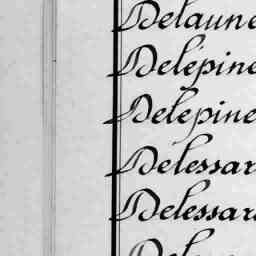 Delaune
Delépine
Delepine
Delessar
Delessar